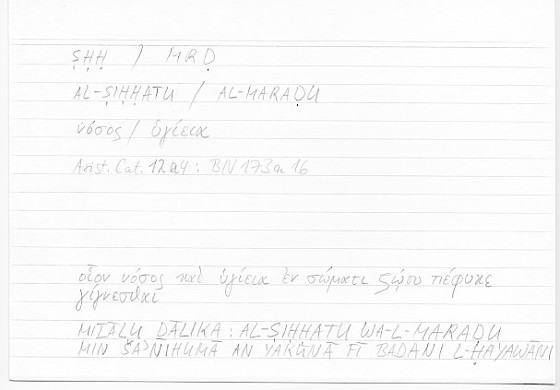 ṢḤḤ / MRḌ
AL-ṢIḤḤATU / AL-MARAḌU
νόσος / ὑγίεια
Arist. Cat. 12a4 : BN 173a 16
οἷον νόσος καὶ ὑγίεια ἐν σώματι ζῴου πέφυκε
γίγνεσθαι
MIṮĀLU ḎĀLIKA : AL-ṢIḤḤATU WA-L-MARAḌU
MIN ŠAʾNIHUMĀ AN YAKŪNĀ FĪ BADANI L-ḤAYAWĀNI